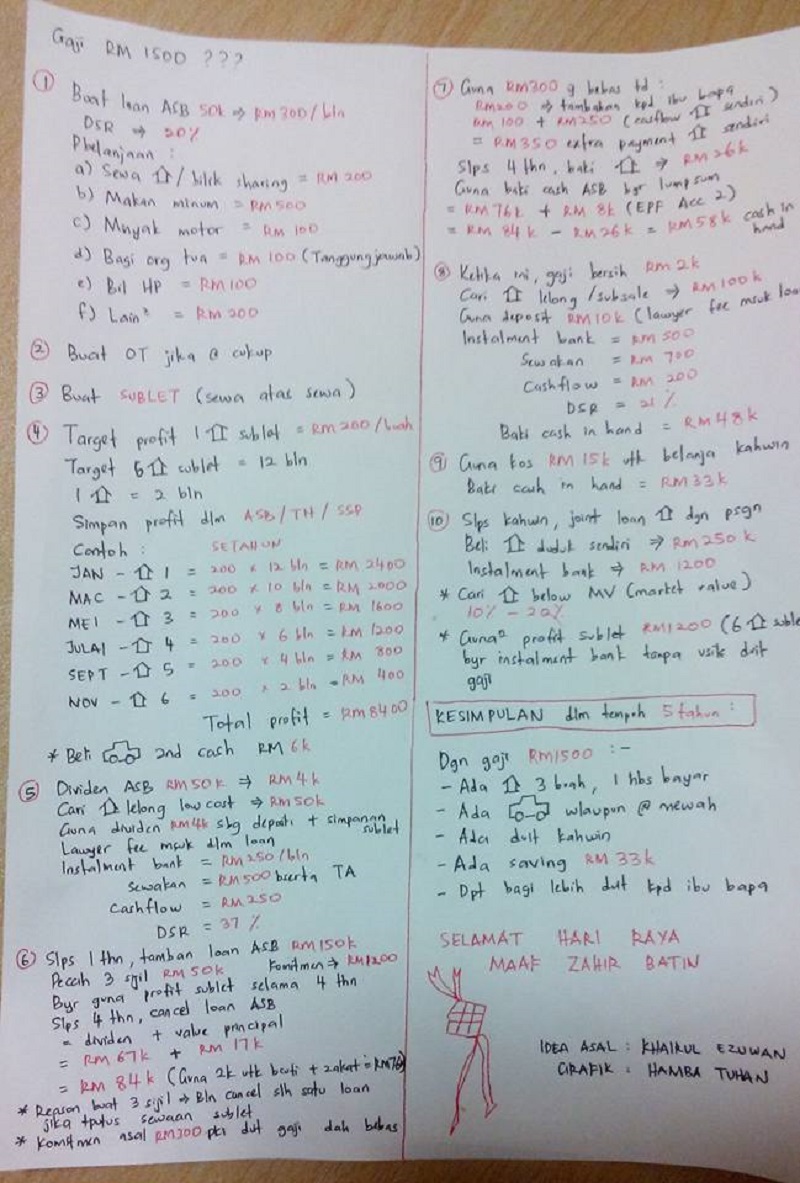 Gaji RM 1500 ???
① Buat loan ASB 50k ⇒ RM 300/bln
DSR ⇒ 20%
Pbelanjaan :
a) Sewa / bilik sharing = RM 200
b) Makan minum = RM 500
c) Mnyak motor = RM 100
d) Bagi org tua = RM 100 (Tanggungjawab)
e) Bil HP = RM 100
f) Lain² = RM 200
② Buat OT jika @ cukup
③ Buat SUBLET (sewa atas sewa)
④ Target profit 1 sublet = RM 200 / buah
Target 6 sublet = 12 bln
1 = 2 bln
Simpan profit dlm ASB / TH / SSP
Contoh : SETAHUN
JAN - 1 = 200 x 12 bln = RM 2400
MAC - 2 = 200 x 10 bln = RM 2000
MEI - 3 = 200 x 8 bln = RM 1600
JULAI - 4 = 200 x 6 bln = RM 1200
SEPT - 5 = 200 x 4 bln = RM 800
NOV - 6 = 200 x 2 bln = RM 400
Total profit = RM 8400
* Beli 2nd cash RM 6k
⑤ Dividen ASB RM 50k ⇒ RM 4k
Cari lelong low cost ⇒ RM 50k
Guna dividen RM 4k sbg deposit + simpanan sublet
Lawyer fee msuk dlm loan
Instalment bank = RM 250/bln
Sewakan = RM 500 bserta TA
Cashflow = RM 250
DSR = 37 %
⑥ Slps 1 thn, tambah loan ASB RM 150k
Pecah 3 sijil RM 50k Komitmen ⇒ RM 1200
Byr guna profit sublet selama 4 thn
Slps 4 thn, cancel loan ASB
= dividen + value principal
= RM 67k + RM 17k
= RM 84k (Guna 2k utk + zakat = RM 76
* Reason buat 3 sijil ⇒ Bln cancel slh satu loan
jika tputus sewaan sublet
* Komitmen asal RM 300 pki dut gaji dah bebas
⑦ Guna RM 300 yg bebas td :
RM 200 ⇒ tambahan kpd ibu bapa
RM 100 + RM 250 (cashflow sendiri)
= RM 350 extra payment sendiri
Slps 4 thn, baki ⇒ RM 26k
Guna baki cash ASB byr lumpsum
= RM 76k + RM 8k (EPF Acc 2)
= RM 84k - RM 26k = RM 58k cash in hand
⑧ Ketika ini, gaji bersih RM 2k
Cari lelong / subsale ⇒ RM 100k
Guna deposit RM 10k (lawyer fee msuk loa
Instalment bank = RM 500
Sewakan = RM 700
Cashflow = RM 200
DSR = 21 %
Baki cash in hand = RM 48k
⑨ Guna kos RM 15k utk belanja kahwin
Baki cash in hand = RM 33k
⑩ Slps kahwin, joint loan dgn psgn
Beli duduk sendiri ⇒ RM 250 k
Instalment bank ⇒ RM 1200
* Cari below MV (market value)
10% - 20%
* Guna² profit sublet RM 1200 (6 suble
byr instalment bank tanpa usik duit
gaji
KESIMPULAN dlm tempoh 5 tahun :
Dgn gaji RM 1500 :-
- Ada 3 buah, 1 hbs bayar
- Ada wlaupun @ mewah
- Ada duit kahwin
- Ada saving RM 33k
- Dpt bagi lebih duit kpd ibu bapa
SELAMAT HARI RAYA
MAAF ZAHIR BATIN
IDEA ASAL : KHAIRUL EZUWAN
GRAFIK : HAMBA TUHAN